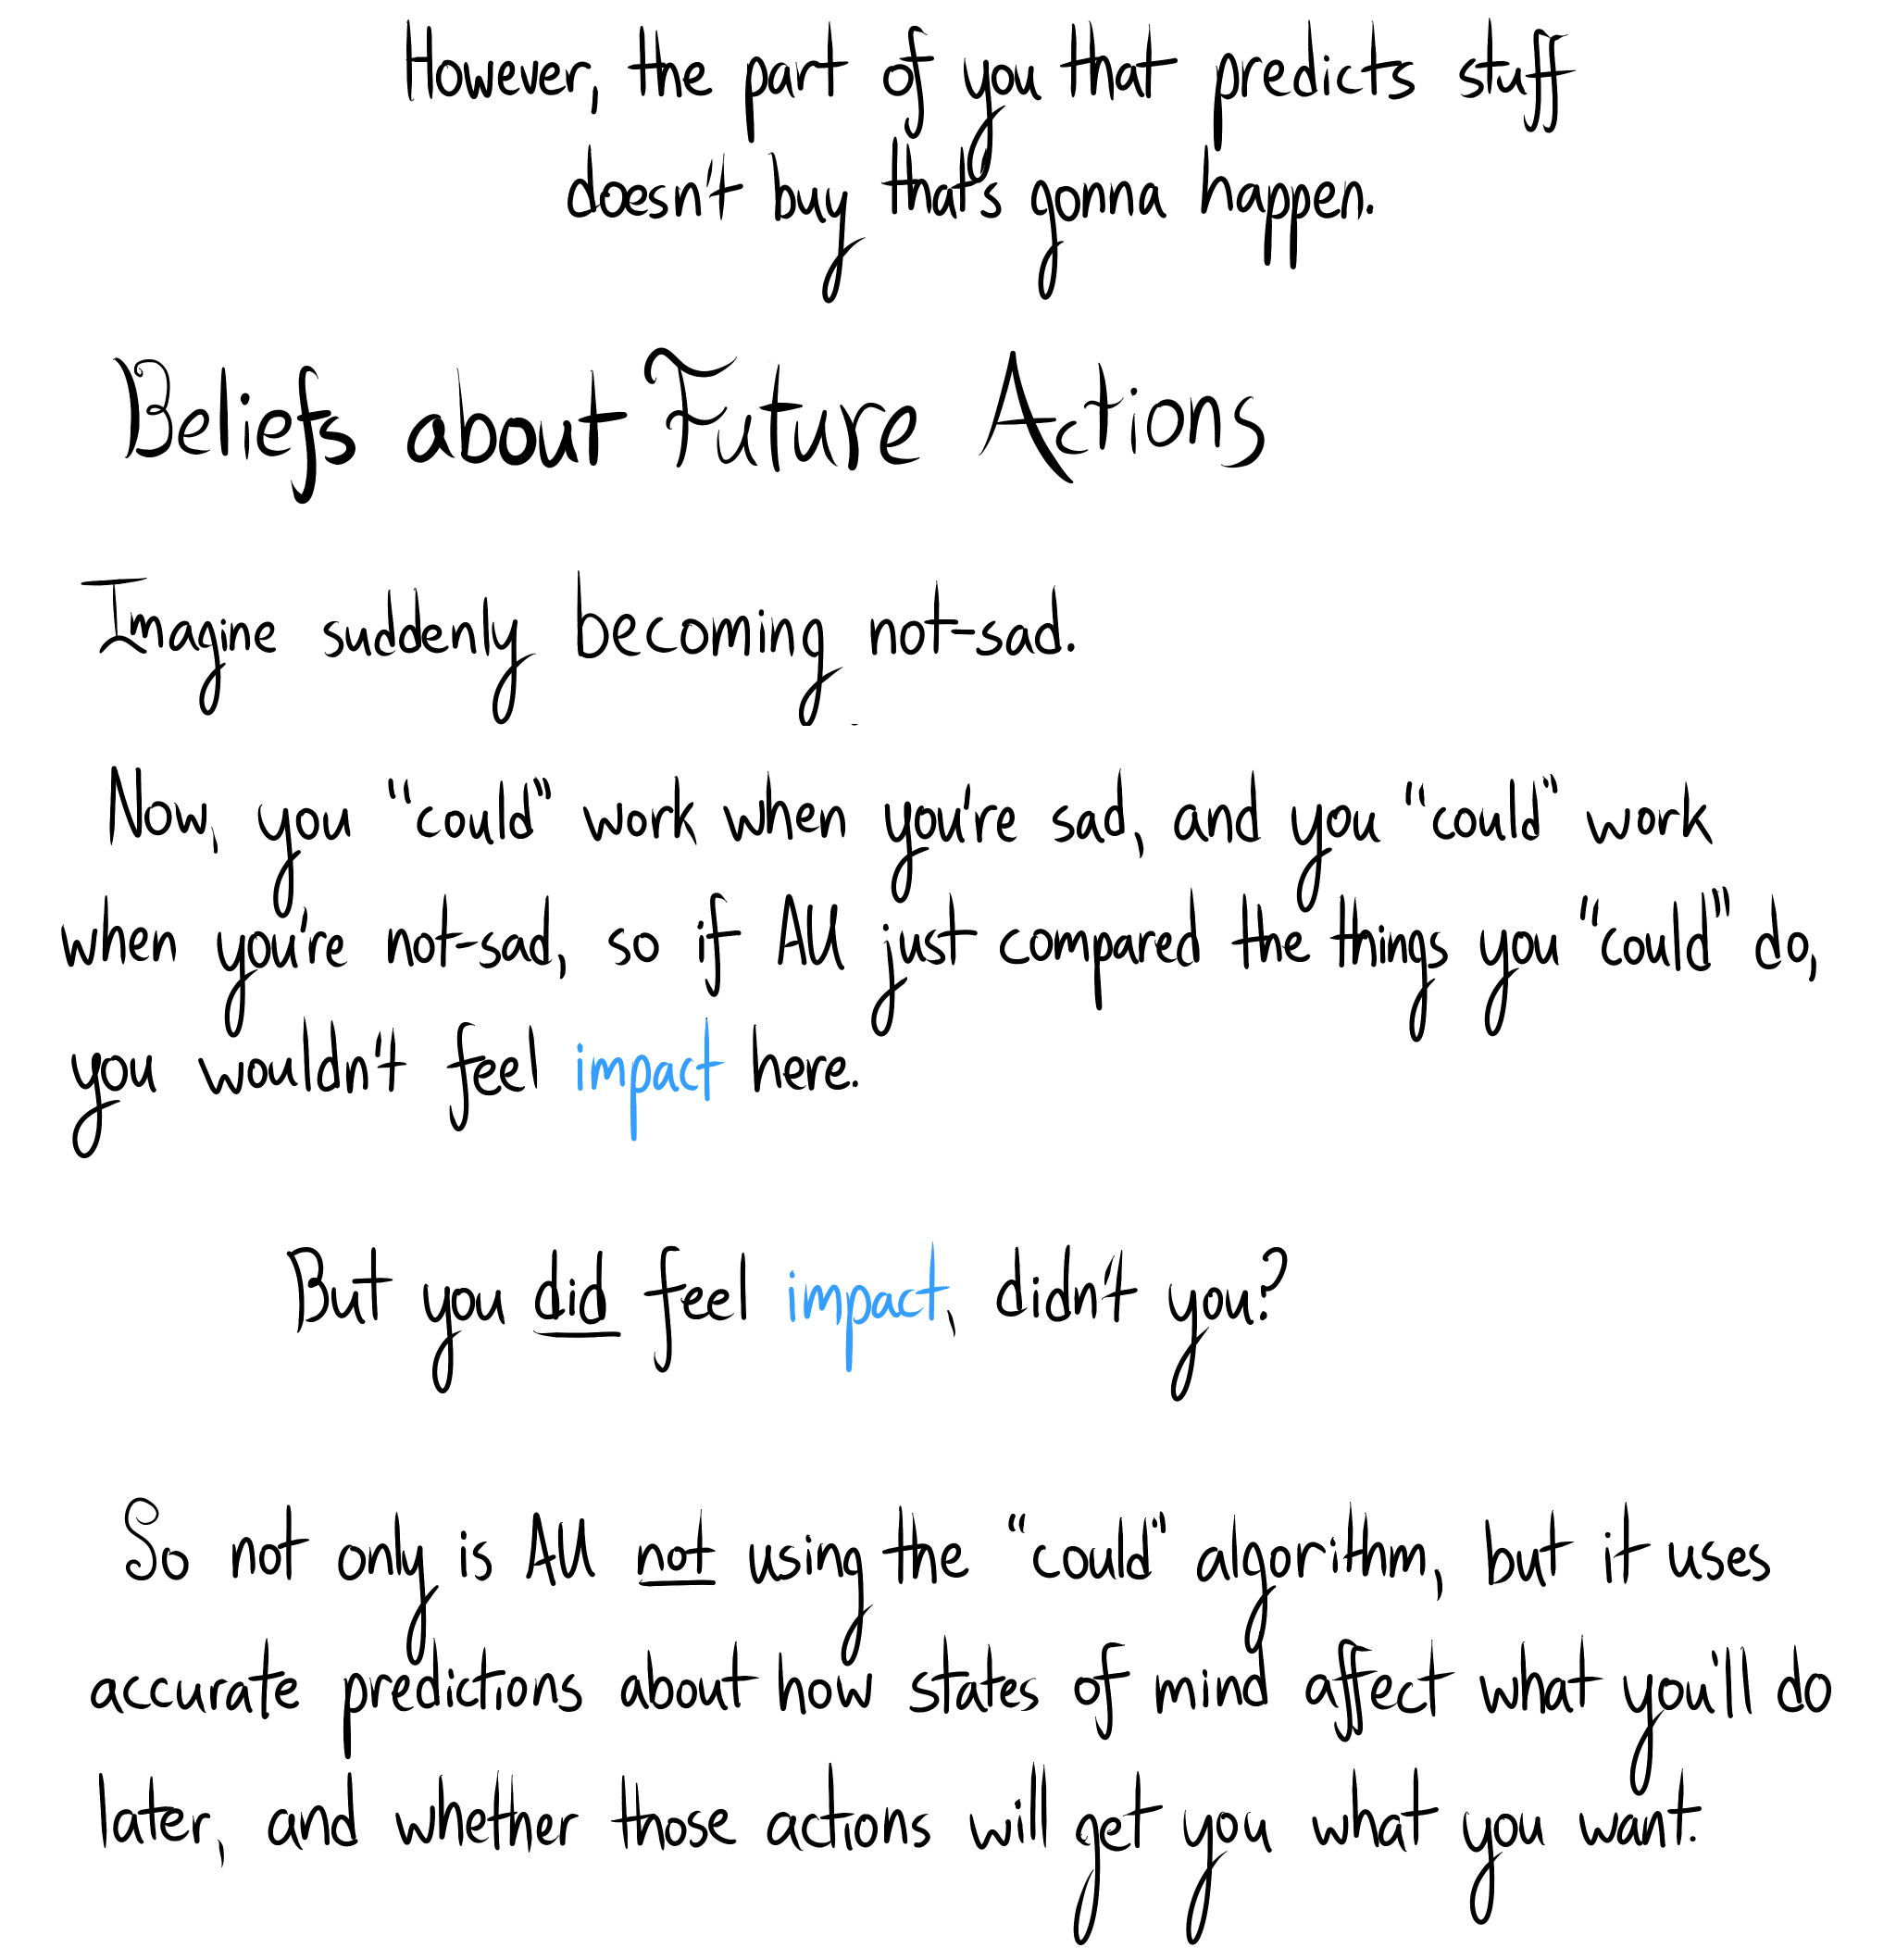 However, the part of you that predicts stuff
doesn't buy that's gonna happen.
Beliefs about Future Actions
Imagine suddenly becoming not-sad.
Now, you "could" work when you're sad, and you "could" work
when you're not-sad, so if AU just compared the things you "could" do,
you wouldn't feel impact here.
But you did feel impact, didn't you?
So not only is AU not using the "could" algorithm, but it uses
accurate predictions about how states of mind affect what you'll do
later, and whether those actions will get you what you want.